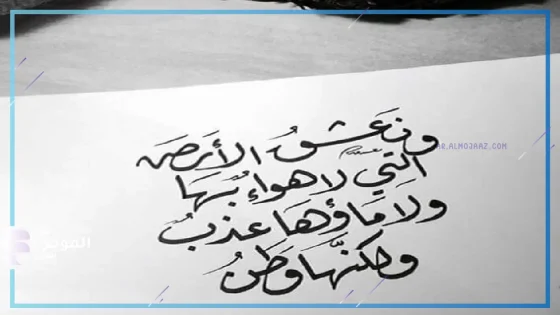 ونَعشقُ الأرضَ
التي لا هواءٌ بها
ولا مَاؤها عذبٌ
ولكنَّها وَطنُ
AR.ALMOJAAZ.COM
الموجز